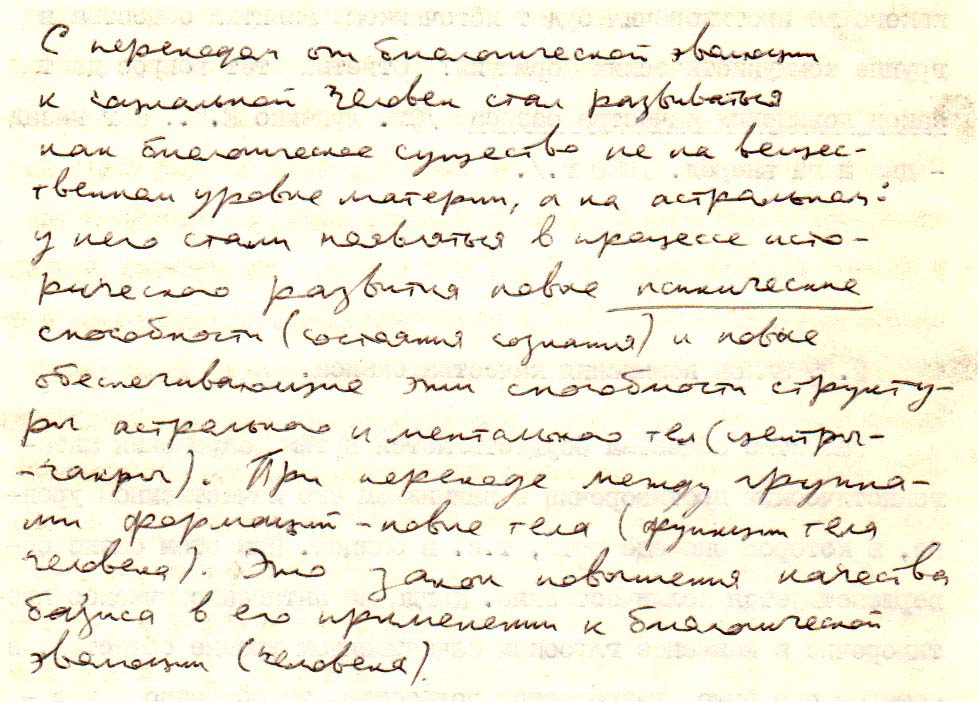 С переходом от биологической эволюции
к социальной человек стал развиваться
как биологическое существо не на вещес-
твенном уровне материи, а на астральном:
у него стали появляться в процессе исто-
рического развития новые психические
способности (состояния сознания) и новые
обеспечивающие эти способности структу-
ры астрального и ментального тел (центры-
-чакры). При переходе между группа-
ми формаций - новые тела (функции тела
человека). Это закон повышения качества
базиса в его применении к биологической
эволюции (человека).